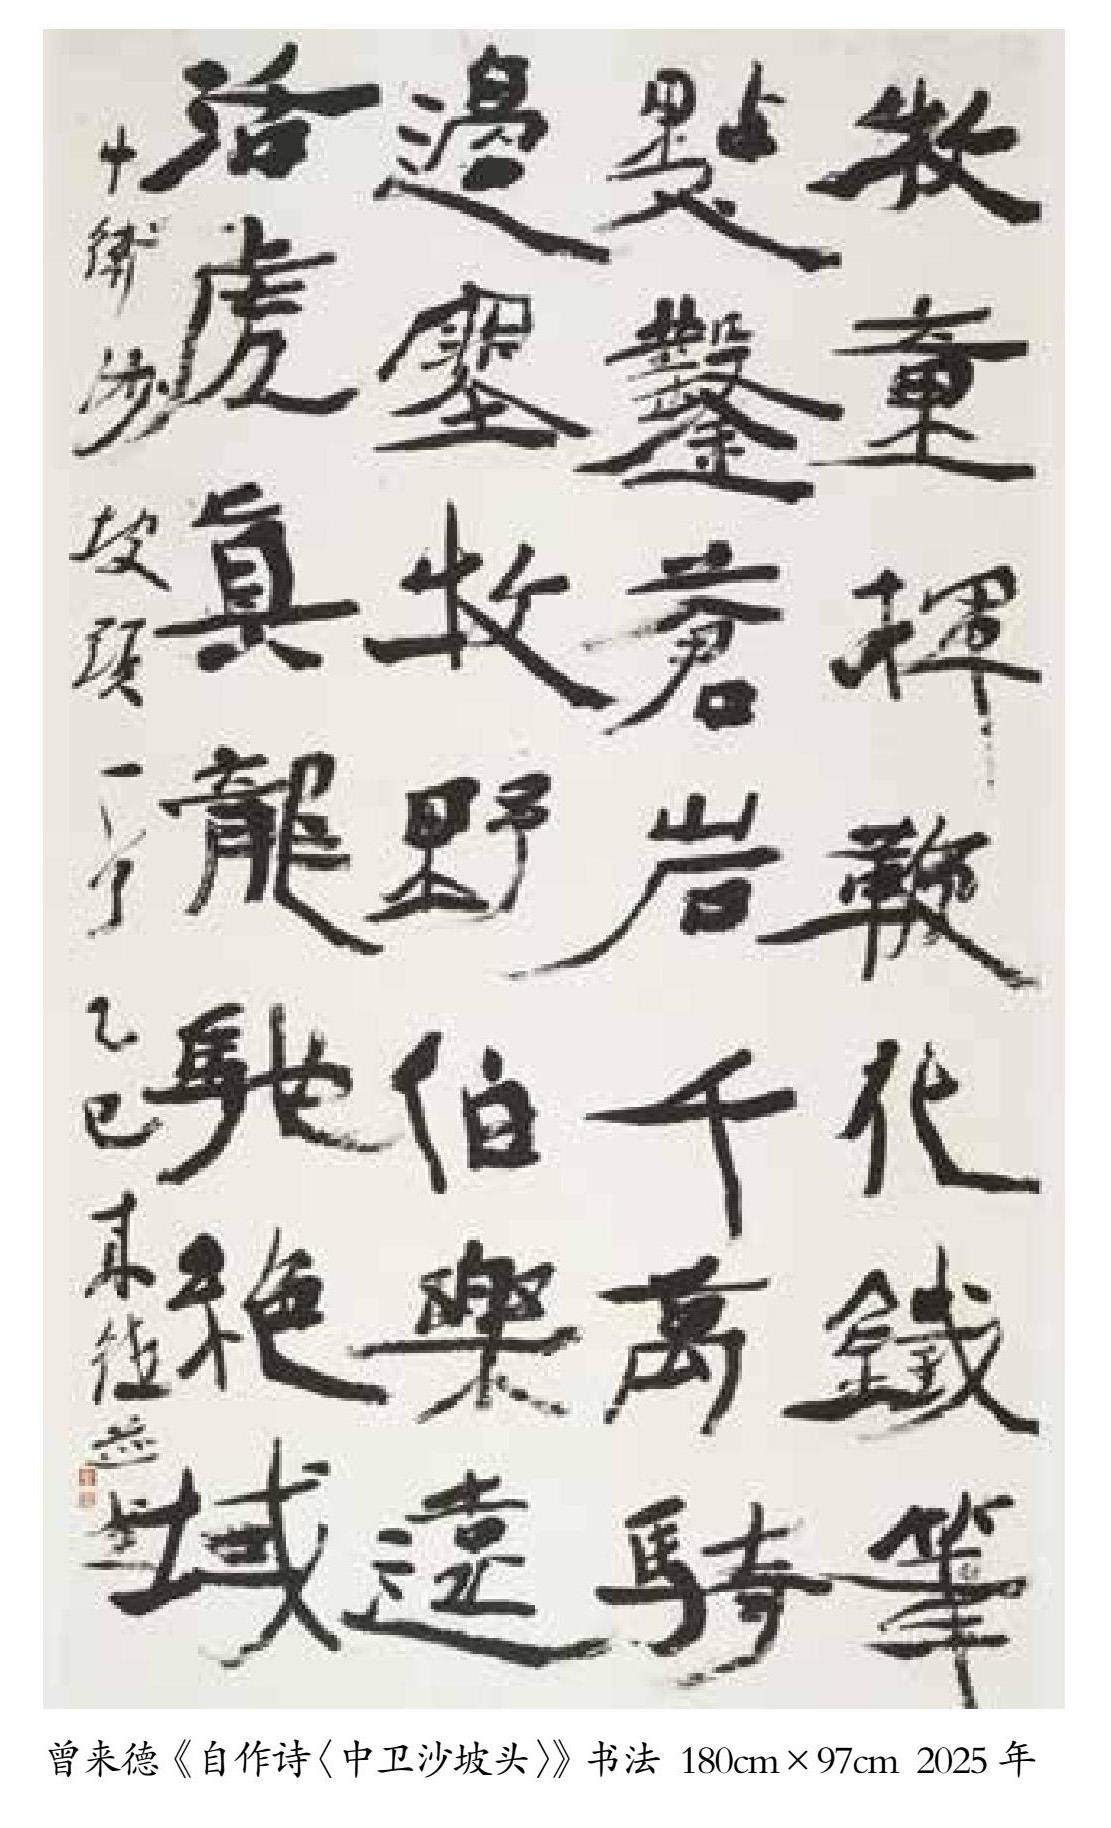 牧童揮鞭化鐵筆
點鑿蒼岩千萬騎
邊塞牧野伯樂遠
活虎真龍馳絕域
中衛沙坡頭一首 乙巳 來德並書
曾来德《自作诗〈中卫沙坡头〉》书法 180cm×97cm 2025年